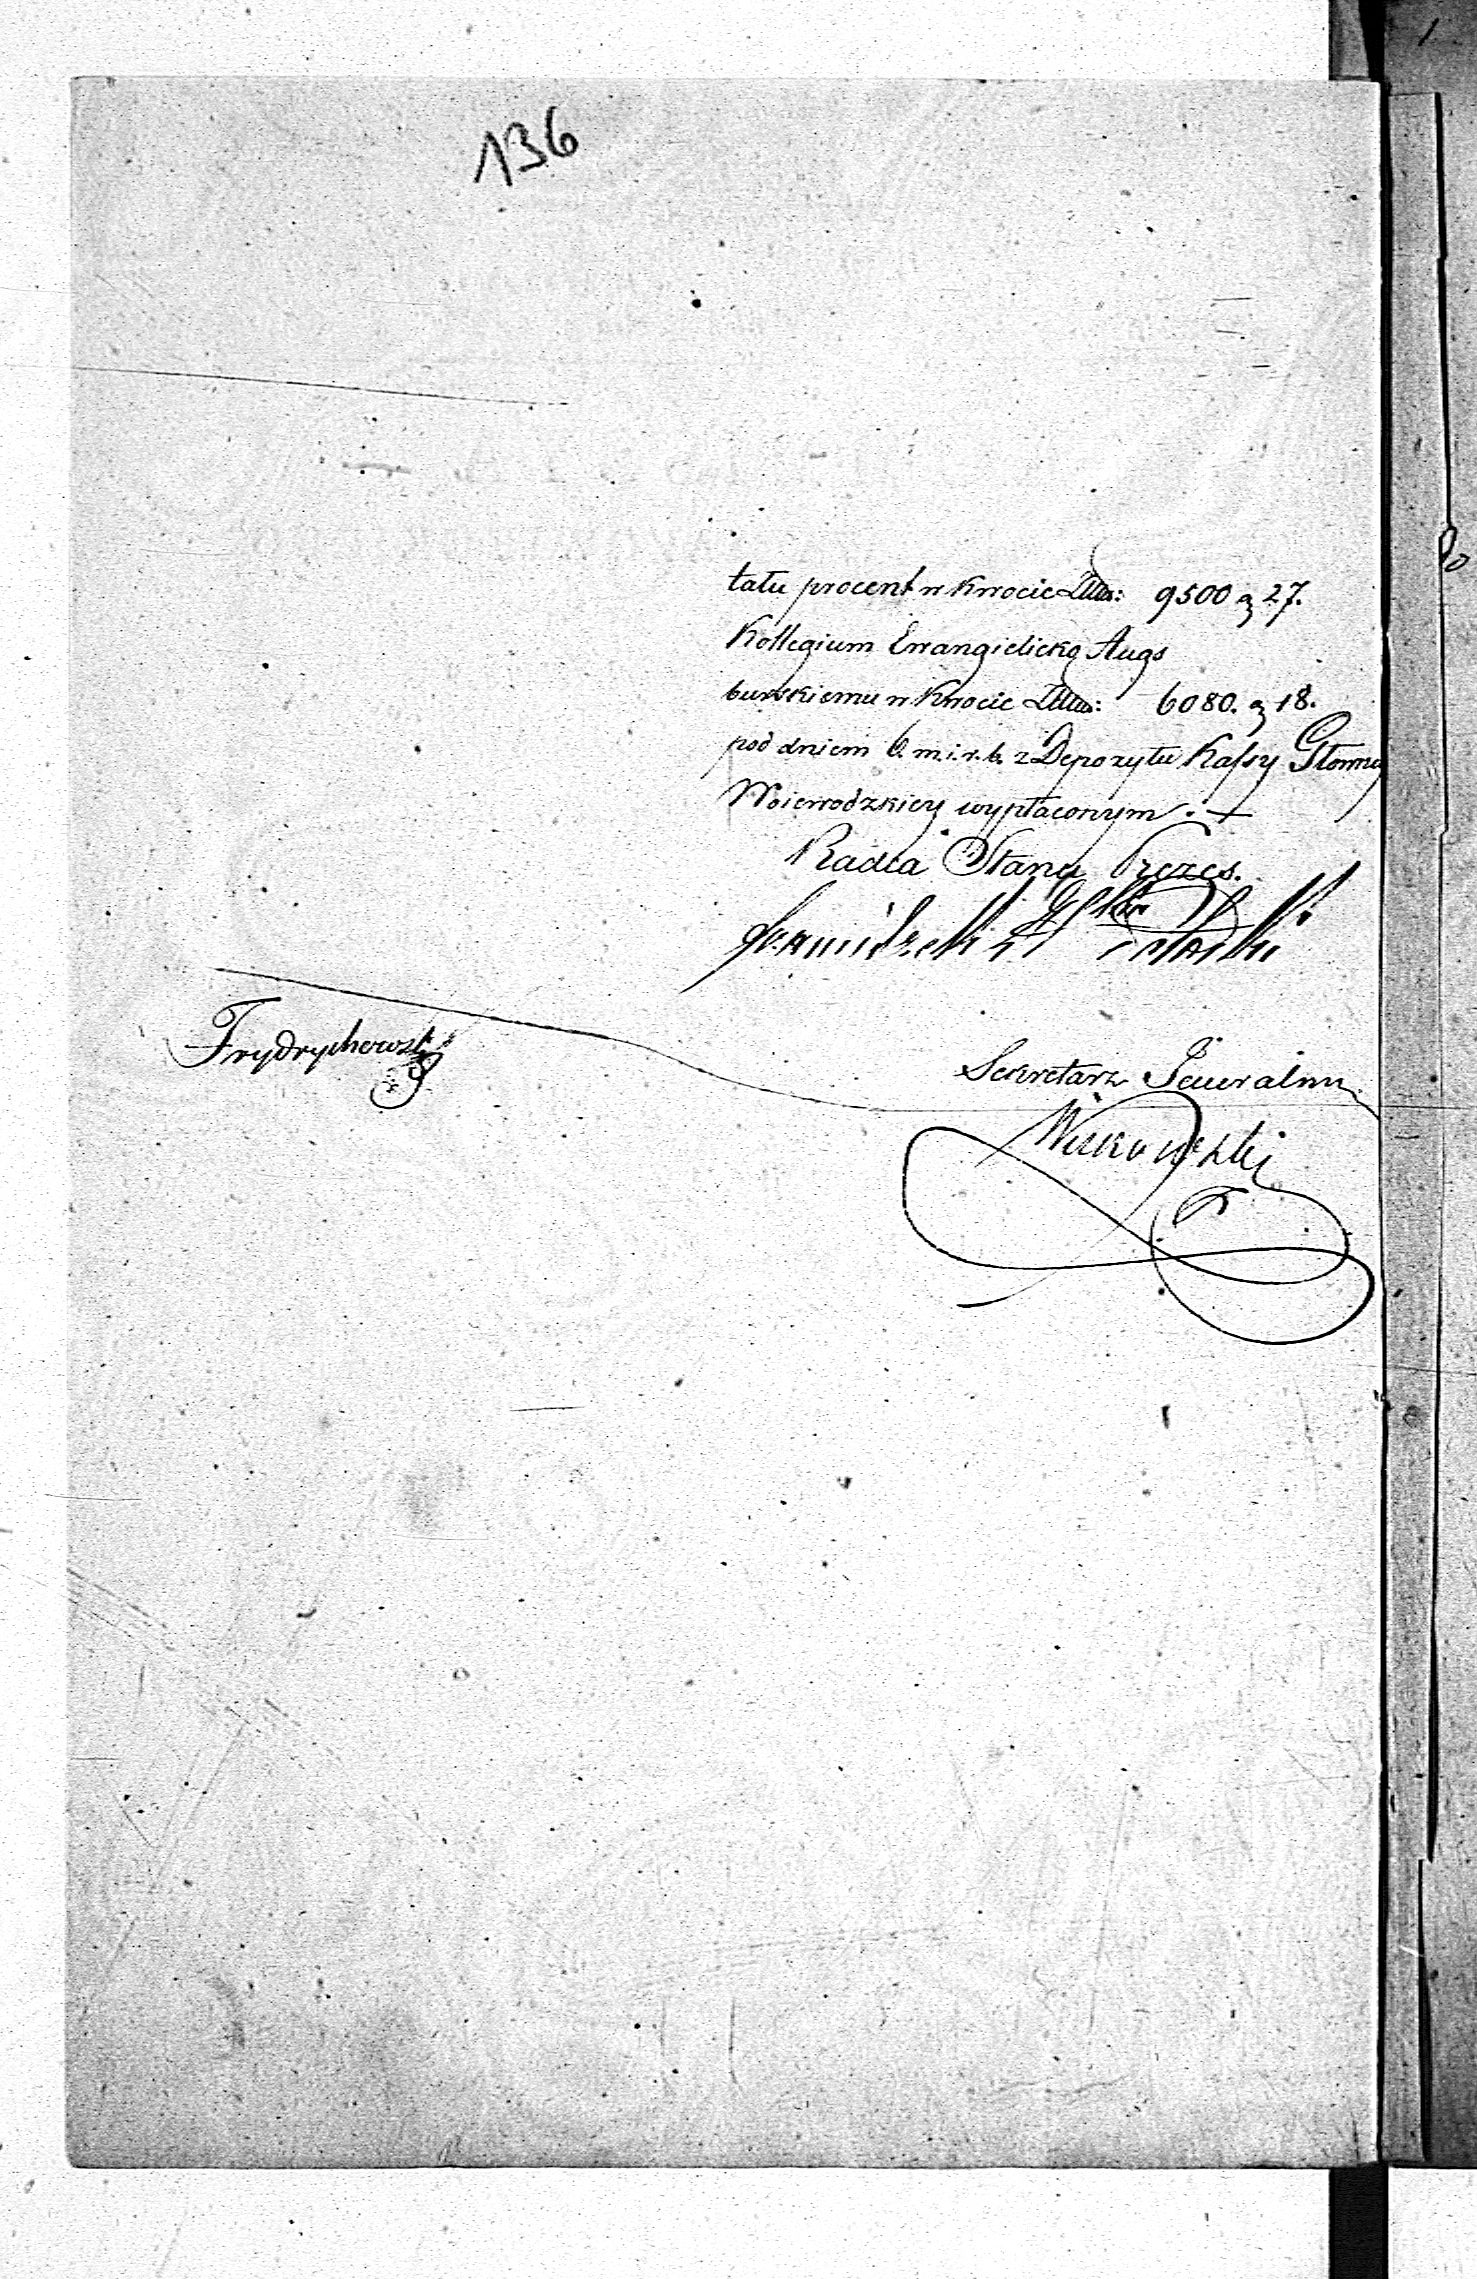 136
tału procent w kwocie 9500 g 27.
Kollegium Ewangielicko Augs
burskiemu w kwocie 6080. g 18.
pod dniem 6. m. i. r. b. z Depozytu Kassy Główney
Woiewodzkiey wypłaconym. +
Radca Stanu Prezes.
Frydrychowski
Sekretarz Jeneralny